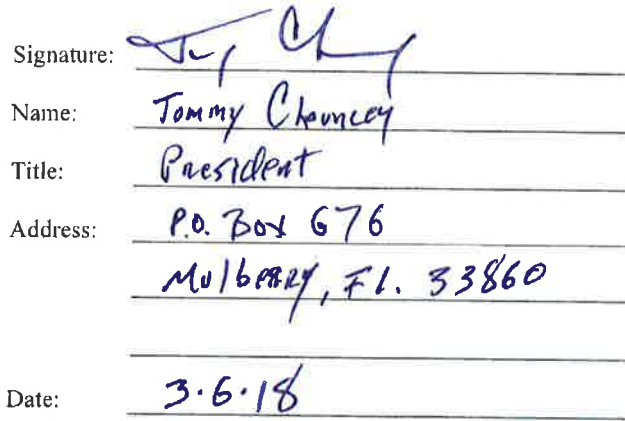 Signature:
Name: Tommy Chauncey
Title: President
Address: P.O. Box 676
Mulberry, Fl. 33860
Date: 3.6.18